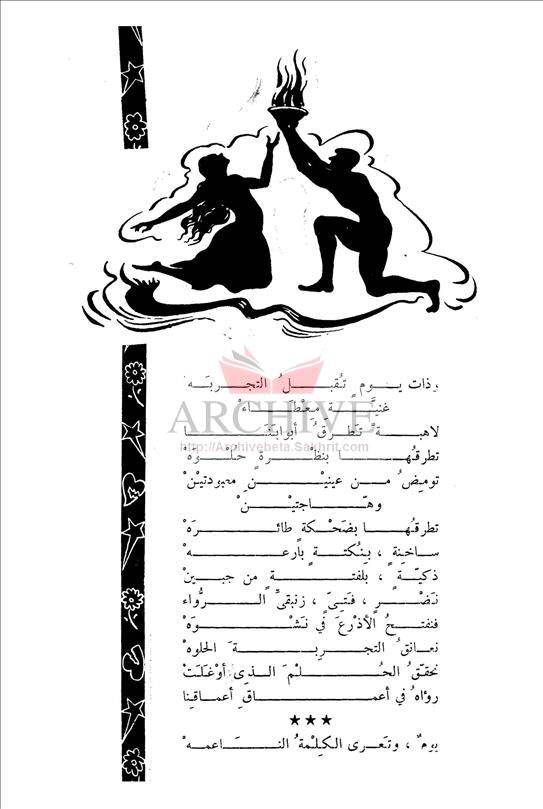 وذات يوم تُقبلُ التجربَه
غنيَّة مِعْطاءْ
لاهبة تَطرقُ أبوابَنا
تطرقُها بنظرةٍ حلوَهْ
توميضُ من عينينْ معبودتينْ
وهّاجتينْ
تطرقُها بضَحْكةٍ طائرَهْ
ساخنةٍ ، بنُكتةٍ بارعهْ
ذكيّةٍ ، بلفتةٍ من جبينْ
نَضْرٍ ، فتيّ ، زنبقيّ الرُّواء
فنفتحُ الأذْرعَ في نَشْوَهْ
نعانقُ التجربةَ الحلوهْ
نحقّقُ الحُلْمَ الذي أوْغلَتْ
رؤاهُ في أعماقِ أعماقِنا
★★★
يومٌ ، وتَعرى الكِلْمةُ الناعمهْ
ARCHIVE
http://Archivebeta.Sakhrit.com